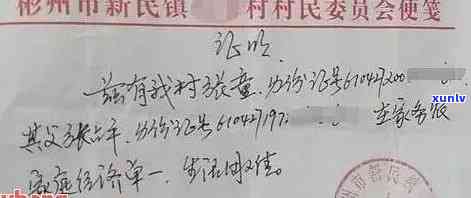 彬州市新民镇 村村民委员会便笺
证明
兹有我村张童,身份证号610427200
其父张占平,身份证号610427197 在家务农
家庭经济单一,生活困难。
州市新民镇
xunlv